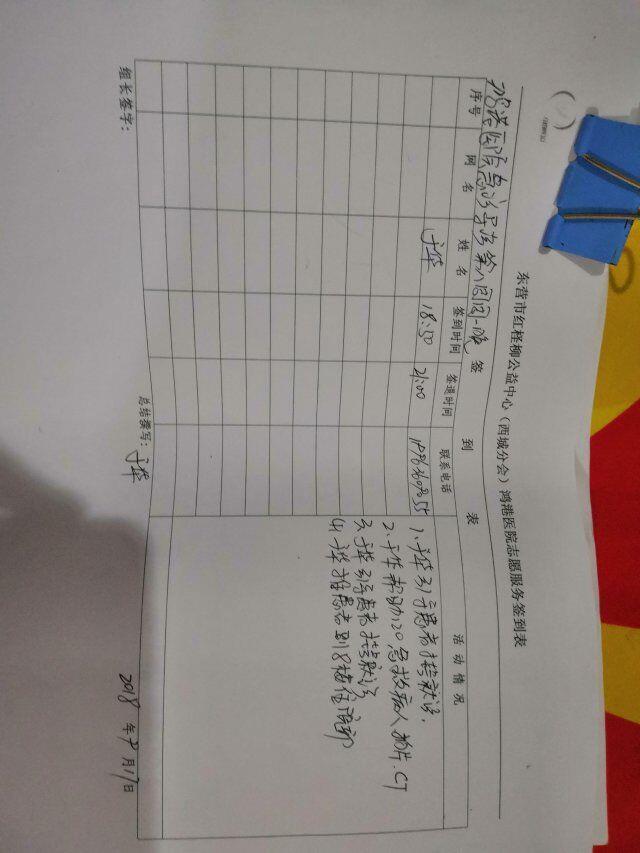 东营市红柽柳公益中心（西城分会）鸿港医院志愿服务签到表
鸿港医院急诊导诊第八周周一晚 签 到 表
序号 网 名 姓 名 签到时间 签退时间 联系电话 活 动 情 况
于华 18:50 21:00
1.于华引导患者挂号就诊.
2.于华帮助120急救病人拍片.CT
3.于华引导患者挂号就诊
4.于华推患者到8楼住院部
组长签字： 总结撰写：于华 2018 年 月17日